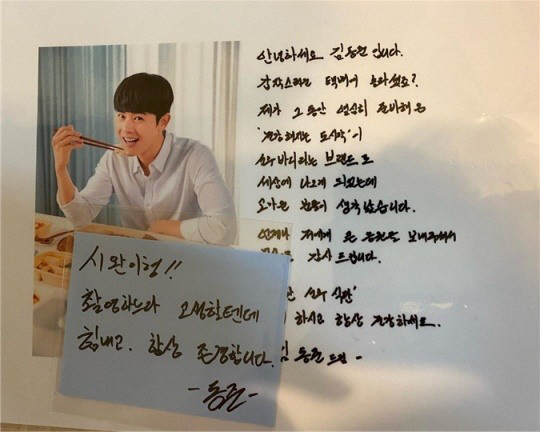 안녕하세요 김동준 입니다.
갑작스러운 택배에 놀라셨죠?
제가 그동안 열심히 준비해온
'건강해지는 도시락'이
브랜드로
세상에 나오게 되었는데
고마운 분들이 생각났습니다.
언제나 저에게 큰 응원을 보내주셔서
감사드립니다.
하시고 항상 건강하세요.
김동준 드림 -
시완이형!!
촬영하느라 고생할텐데
힘내고. 항상 존경합니다.
- 동준 -